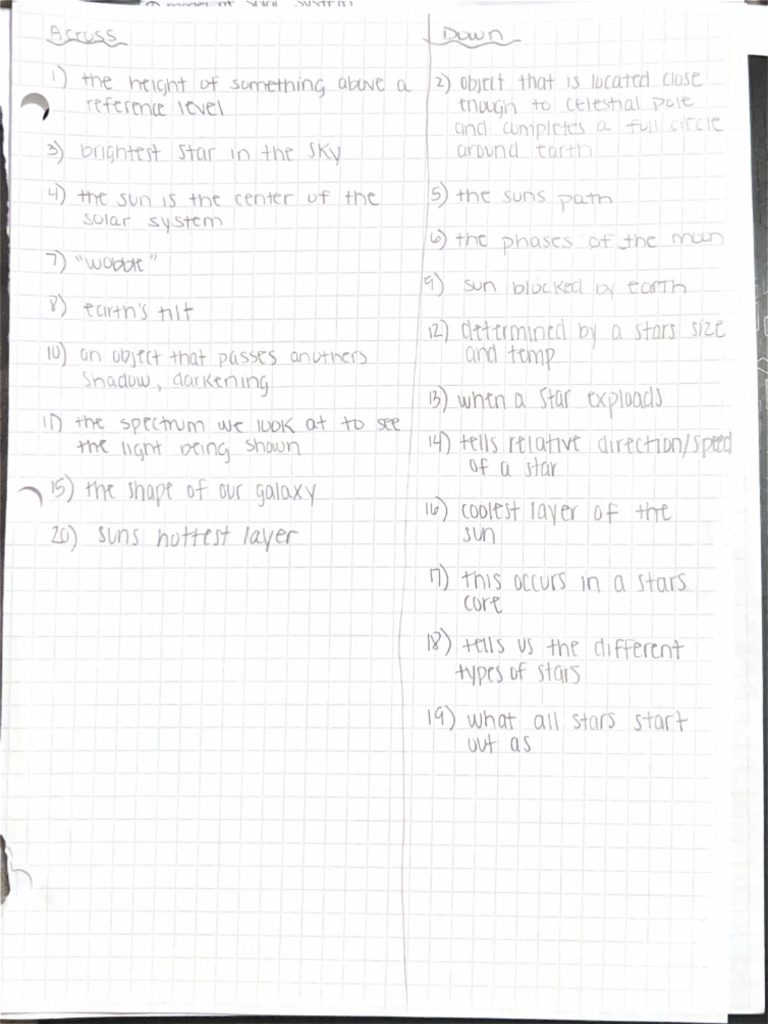 Across
1) the height of something above a
reference level
3) brightest star in the sky
4) the sun is the center of the
solar system
7) "wobble"
8) earth's tilt
10) an object that passes anothers
shadow, darkening
11) the spectrum we look at to see
the light being shown
15) the shape of our galaxy
20) suns hottest layer
Down
2) object that is located close
enough to celestial pole
and completes a full circle
around earth
5) the suns path
6) the phases of the moon
9) sun blocked by earth
12) determined by a stars size
and temp
13) when a star exploads
14) tells relative direction/speed
of a star
16) coolest layer of the
sun
17) this occurs in a stars
core
18) tells us the different
types of stars
19) what all stars start
out as